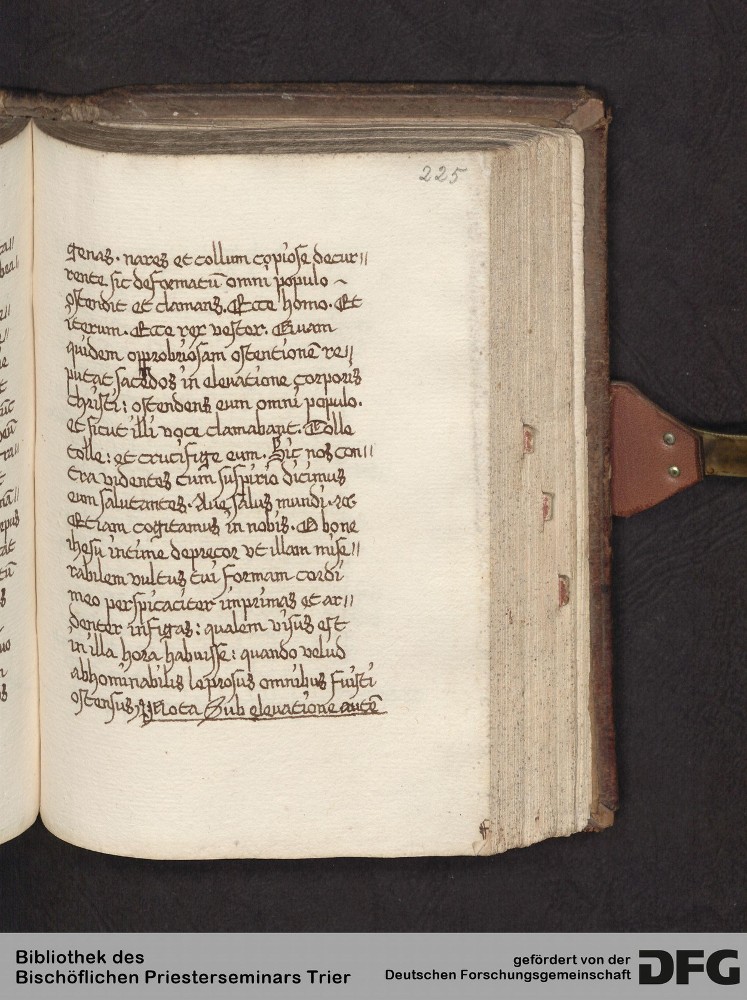 225
genas. nares et collum copiose decur//
rente sic deformatū omni populo ~
ostendit et clamans. Ecce homo. Et
iterum. Ecce rex vester. Quam
quidem opprobriosam ostentionē re//
putat sacerdos in eleuatione corporis
christi: ostendens eum omni populo.
et sicut illi voce clamabant. Tolle
tolle: et crucifige eum. Sic nos con//
tra videntes cum suspirio dicimus
eum salutantes. Aue salus mundi. ⁊c
Etiam cogitamus in nobis. O bone
ihesu intime deprecor vt illam mise//
rabilem vultus tui formam cordi
meo perspicaciter imprimas et ar//
denter infigas: qualem visus est
in illa hora habuisse: quando velud
abhominabilis leprosus omnibus fuisti
ostensus, Nota Sub eleuatione autē
Bibliothek des
Bischöflichen Priesterseminars Trier
gefördert von der
Deutschen Forschungsgemeinschaft
DFG